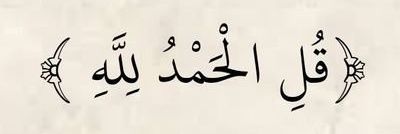 ﴿ قُلِ الْحَمْدُ لِلَّهِ ﴾